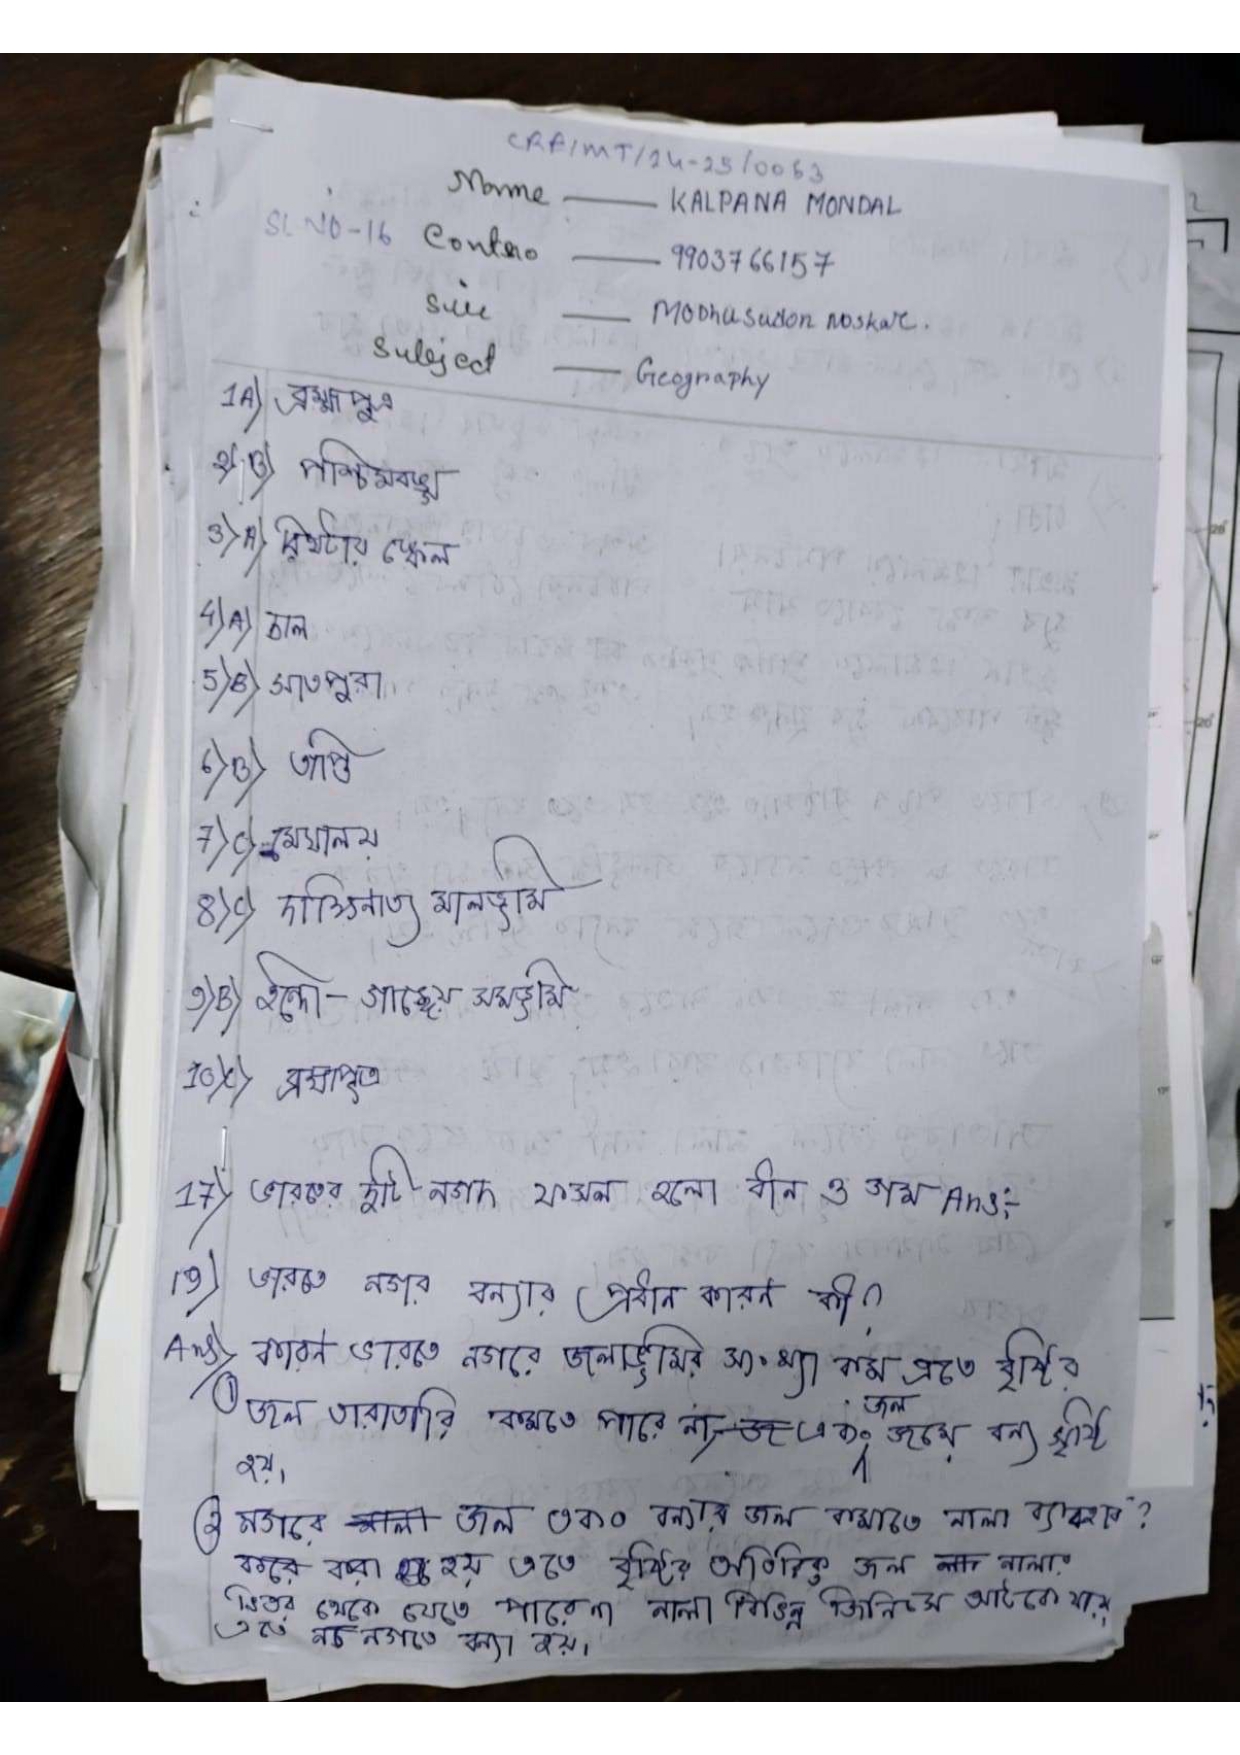 CRF/MT/24-25/0063
Name — KALPANA MONDAL
SL NO-16 Contro — 9903766157
— Modhusudon Noskar.
Subject — Geography
1A) ব্রহ্মাপুত্র
2) B) পশ্চিমবঙ্গ
3) A) রিখটার স্কেল
4) A) চাল
5) B) সাতপুরা
6) B) তাপ্তি
7) C) মেঘালয়
8) C) দাক্ষিনাত্য মালভূমি
9) B) ইন্দো - গাঙ্গেয় সমভূমি
10) C) ব্রহ্মাপুত্র
17) ভারতের দুটি নগদ ফসল হলো ধান ও গম Ans:-
19) ভারতে নগর বন্যার প্রধান কারন কী?
Ans) কারন ভারতে নগরে জলাভূমির সংখ্যা কম এতে বৃষ্টির
① জল তারাতারি কমতে পারে না, এবং জল জমে বন্যা সৃষ্টি
হয়।
② নগরে জল এবং বন্যার জল কমাতে নালা ব্যাবহার?
করা হয় এতে বৃষ্টির অতিরিক্ত জল নালার
ভিতর থেকে যেতে পারে না নালা বিভিন্ন জিনিসে আটকে যায়
এতে নগরে বন্যা হয়।